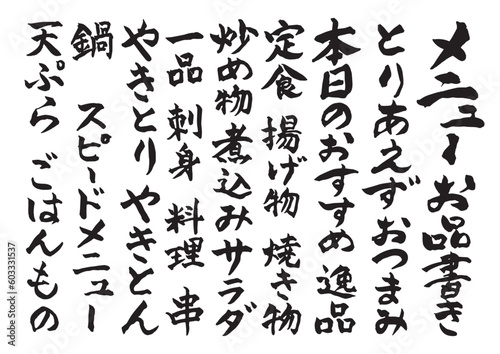 メニュー お品書き
とりあえず おつまみ
本日のおすすめ 逸品
定食 揚げ物 焼き物
炒め物 煮込み サラダ
一品 刺身 料理 串
やきとり やきとん
鍋 スピードメニュー
天ぷら ごはんもの
Adobe Stock | #603331537